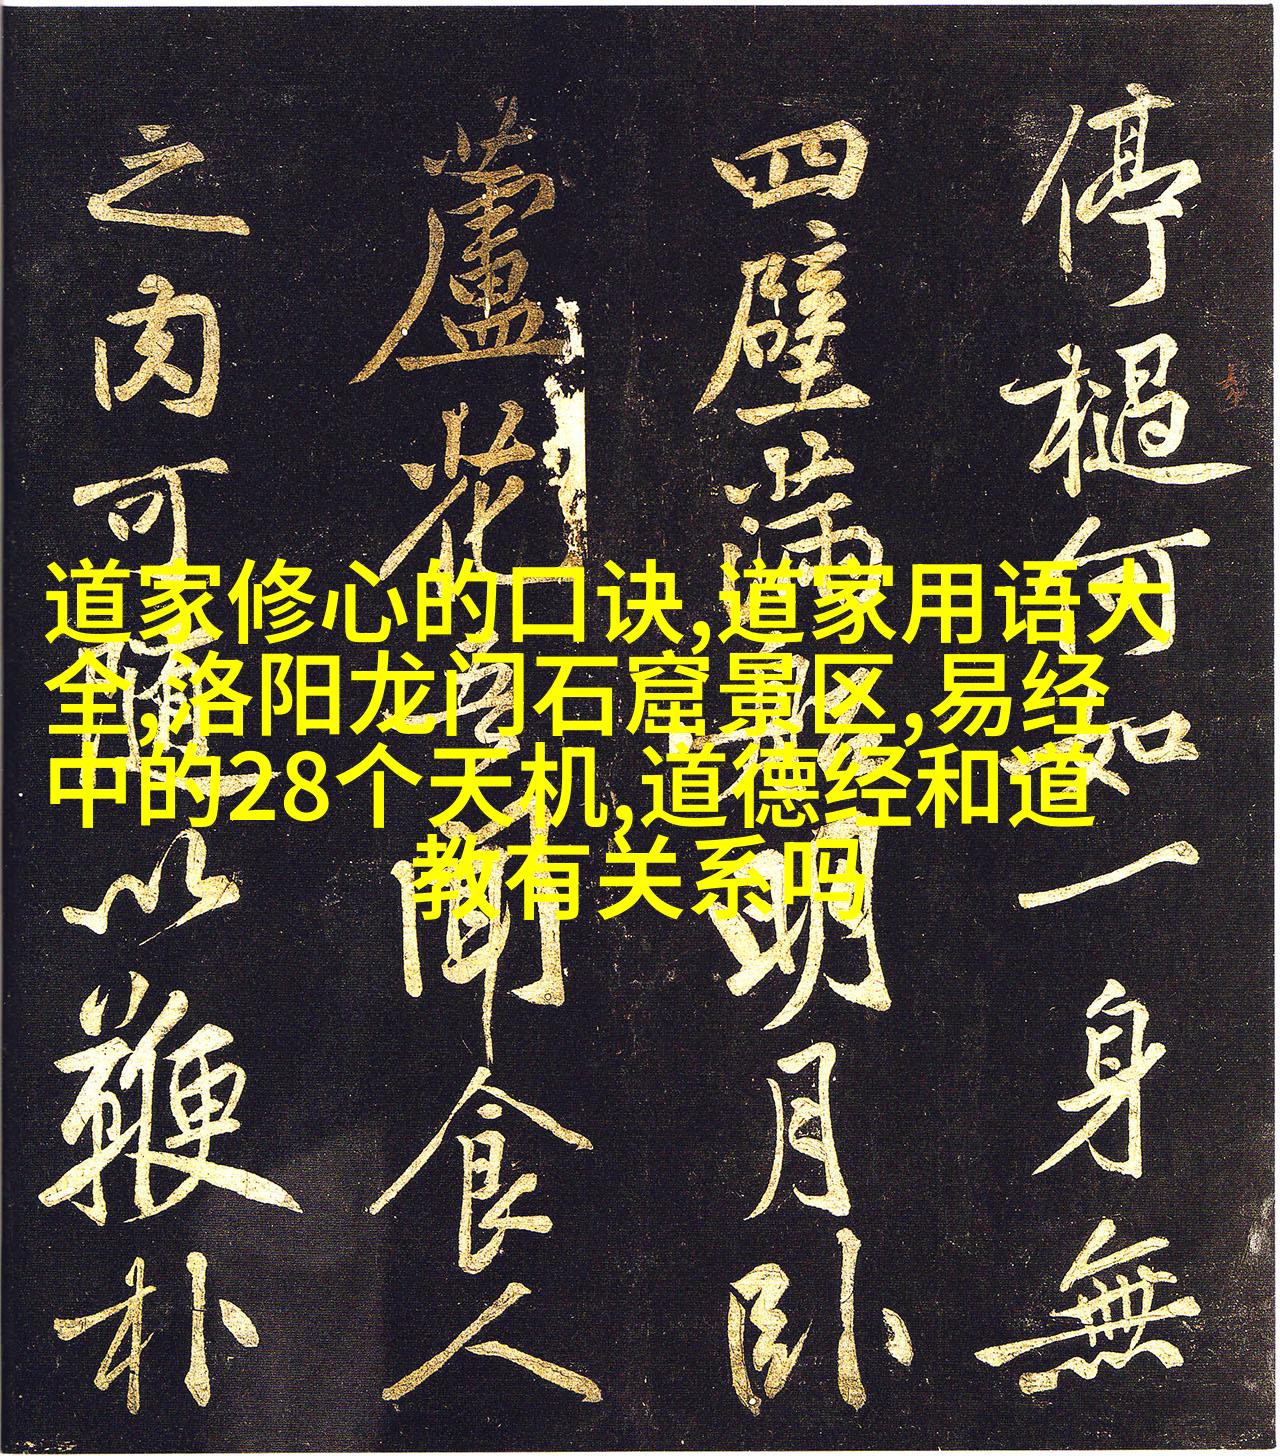 道家修心的口诀,道家用语大
全,洛阳龙门石窟景区,易经
中的28个天机,道德经和道
教有关系吗
停檛何如一身無
四壁滿船明月臥
蘆花吾聞食人
之肉可隨以鞭朴